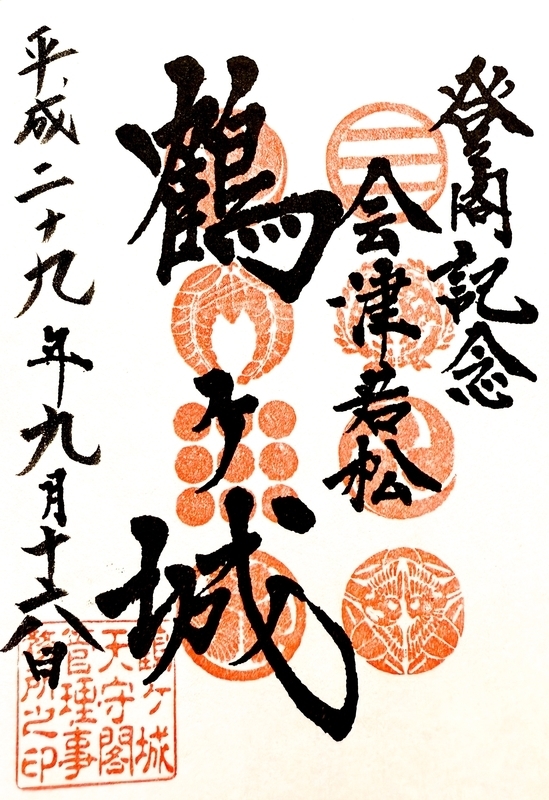 登閣記念
会津若松
鶴ヶ城
平成二十九年九月十六日
鶴ヶ城
天守閣
管理事
務所之印